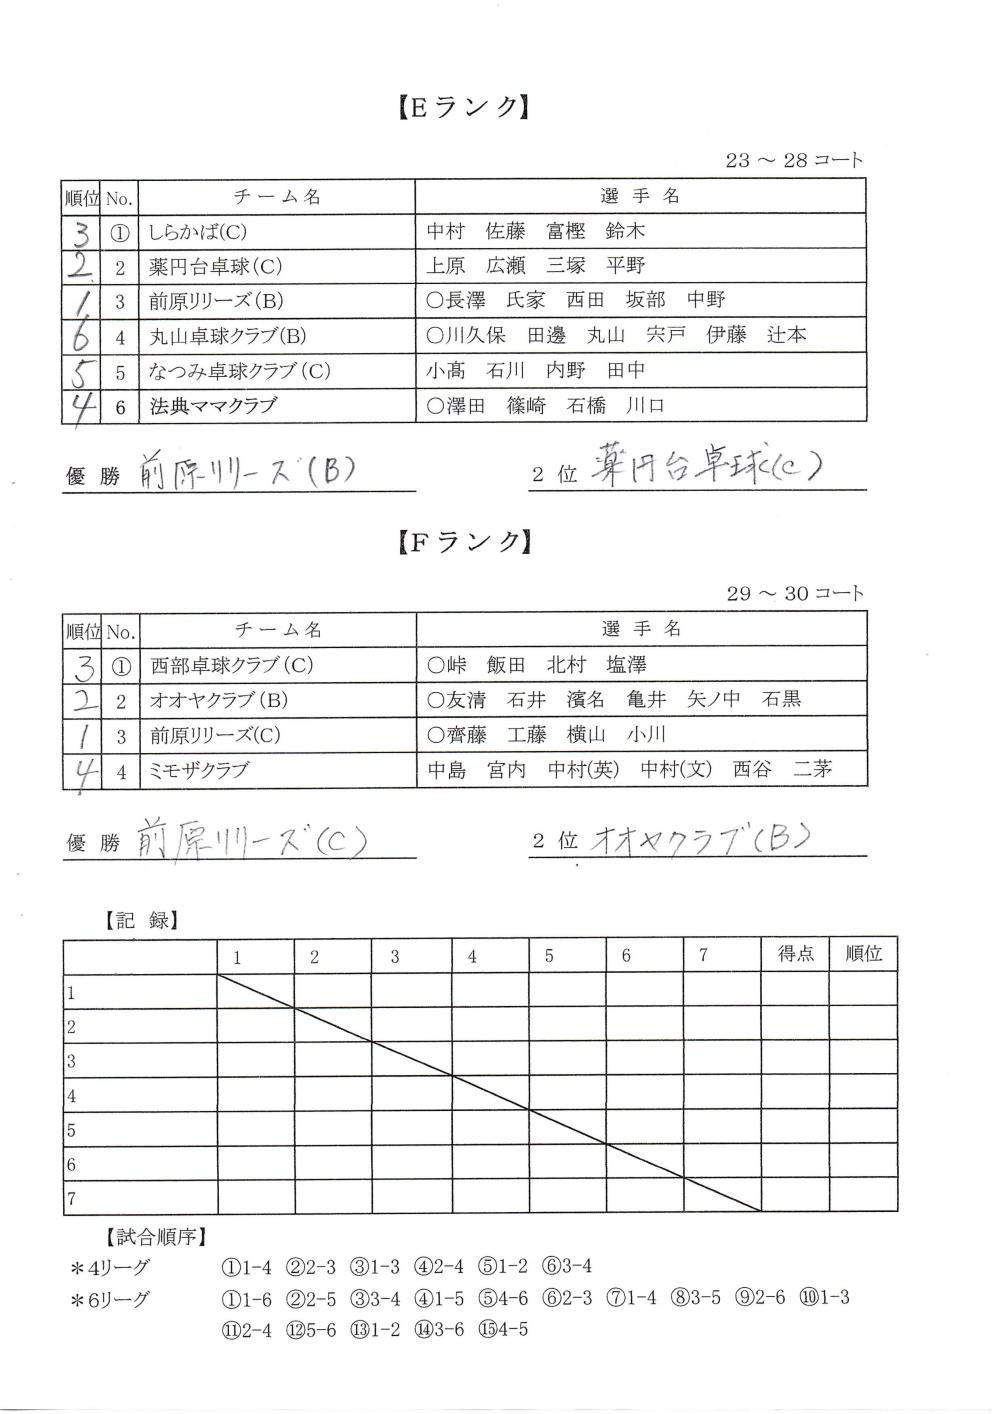 【Eランク】
23 ～ 28 コート
順位 No. チ ー ム 名 選 手 名
3 ① しらかば(C) 中村 佐藤 富樫 鈴木
2 2 薬円台卓球(C) 上原 広瀬 三塚 平野
1 3 前原リリーズ(B) ○長澤 氏家 西田 坂部 中野
6 4 丸山卓球クラブ(B) ○川久保 田邊 丸山 宍戸 伊藤 辻本
5 5 なつみ卓球クラブ(C) 小髙 石川 内野 田中
4 6 法典ママクラブ ○澤田 篠崎 石橋 川口
優 勝 前原リリーズ(B) 2 位 薬円台卓球(C)
【Fランク】
29 ～ 30 コート
順位 No. チ ー ム 名 選 手 名
3 ① 西部卓球クラブ(C) ○峠 飯田 北村 塩澤
2 2 オオヤクラブ(B) ○友清 石井 濱名 亀井 矢ノ中 石黒
1 3 前原リリーズ(C) ○齊藤 工藤 横山 小川
4 4 ミモザクラブ 中島 宮内 中村(英) 中村(文) 西谷 二茅
優 勝 前原リリーズ(C) 2 位 オオヤクラブ(B)
【記 録】
1 2 3 4 5 6 7 得点 順位
1
2
3
4
5
6
7
【試合順序】
＊4リーグ ①1-4 ②2-3 ③1-3 ④2-4 ⑤1-2 ⑥3-4
＊6リーグ ①1-6 ②2-5 ③3-4 ④1-5 ⑤4-6 ⑥2-3 ⑦1-4 ⑧3-5 ⑨2-6 ⑩1-3
⑪2-4 ⑫5-6 ⑬1-2 ⑭3-6 ⑮4-5